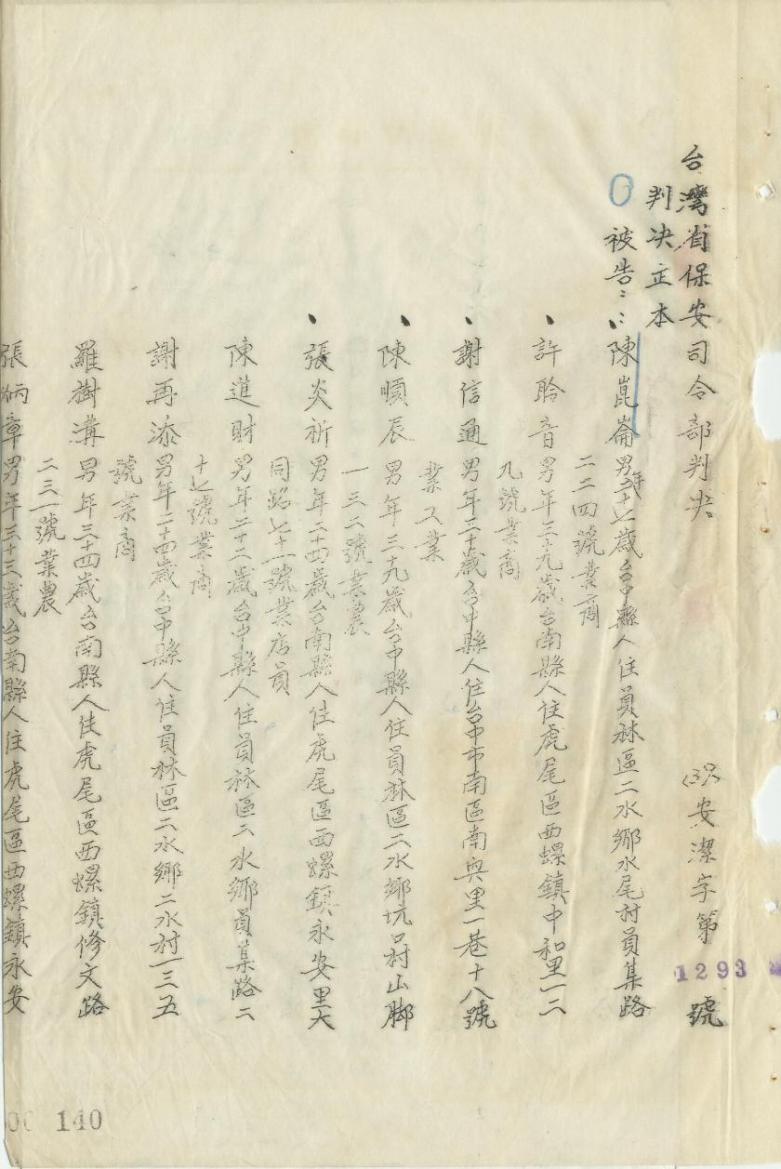 台灣省保安司令部判決
(39)安潔字第1293號
判決正本
被告：陳崑崙男年二十七歲台中縣人住員林區二水鄉水尾村員集路
二二四號業商
許聆音男年三九歲台南縣人住虎尾區西螺鎮中和里一二
九號業商
謝信通男年三十歲台中縣人住台中市南區南興里一巷十八號
業工業
陳順辰男年三九歲台中縣人住員林區二水鄉坑口村山脚
一三二號業農
張炎祈男年二十四歲台南縣人住虎尾區西螺鎮永安里大
同路七十一號業店員
陳進財男年二十二歲台中縣人住員林區二水鄉員集路二
十七號業商
謝再添男年二十四歲台中縣人住員林區二水鄉二水村一三五
號業商
羅樹溝男年三十四歲台南縣人住虎尾區西螺鎮修文路
二三一號業農
張炳章男年三十三歲台南縣人住虎尾區西螺鎮永安
140